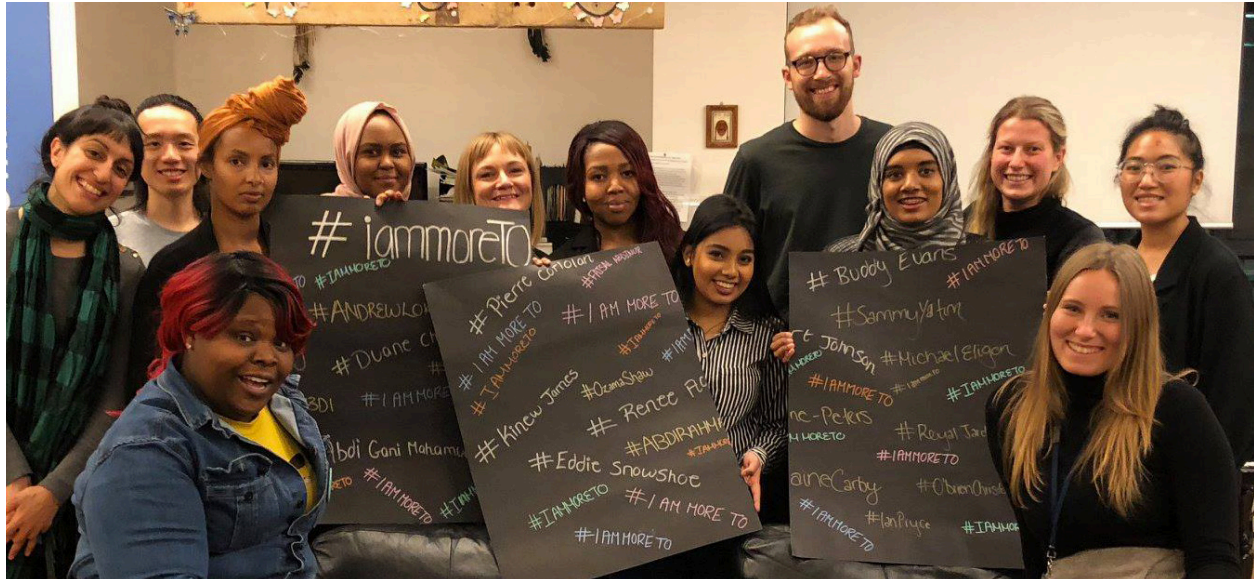 #iammoreTO
#IAMMORETO
#ANDREWLO
#Duane Ch
BDI
#IAMMOR
Abdi Gani Mahamu
#IAMMORETO
#IAM
#Pierre Coriolan
#I AM MORE TO
#IAMMORETO
#I AM MORE TO
#IAMMORETO
#IAMM
#Kinew James
#OzamaShaw
#Renee Ac
#ABDIRAHM
#IAMMOR
#Eddie Snowshoe
#IAMMORETO
#I AM MORE TO
#IAMMORETO
#Buddy Evans
#IAMMORETO
#SammyYatim
Johnson
#MichaelEligon
#IAMMORETO
#iammoreto
#IAMMORETO
ne-Peters
MMORETO
#Reyal Jard
#IAMMORETO
aineCarby
#O'BrienChrist
#IAMMORETO
#IanPryce
#IAMMOR